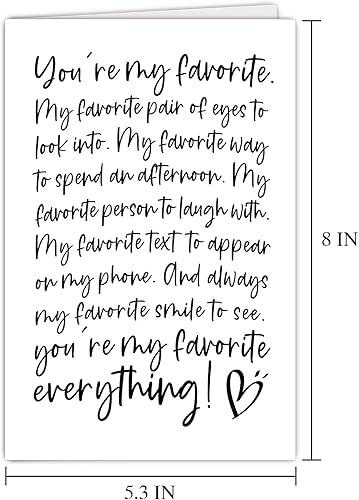 You're my favorite.
My favorite pair of eyes to
look into. My favorite way
to spend an afternoon. My
favorite person to laugh with.
My favorite text to appear
on my phone. And always
my favorite smile to see.
you're my favorite
everything!
8 IN
5.3 IN